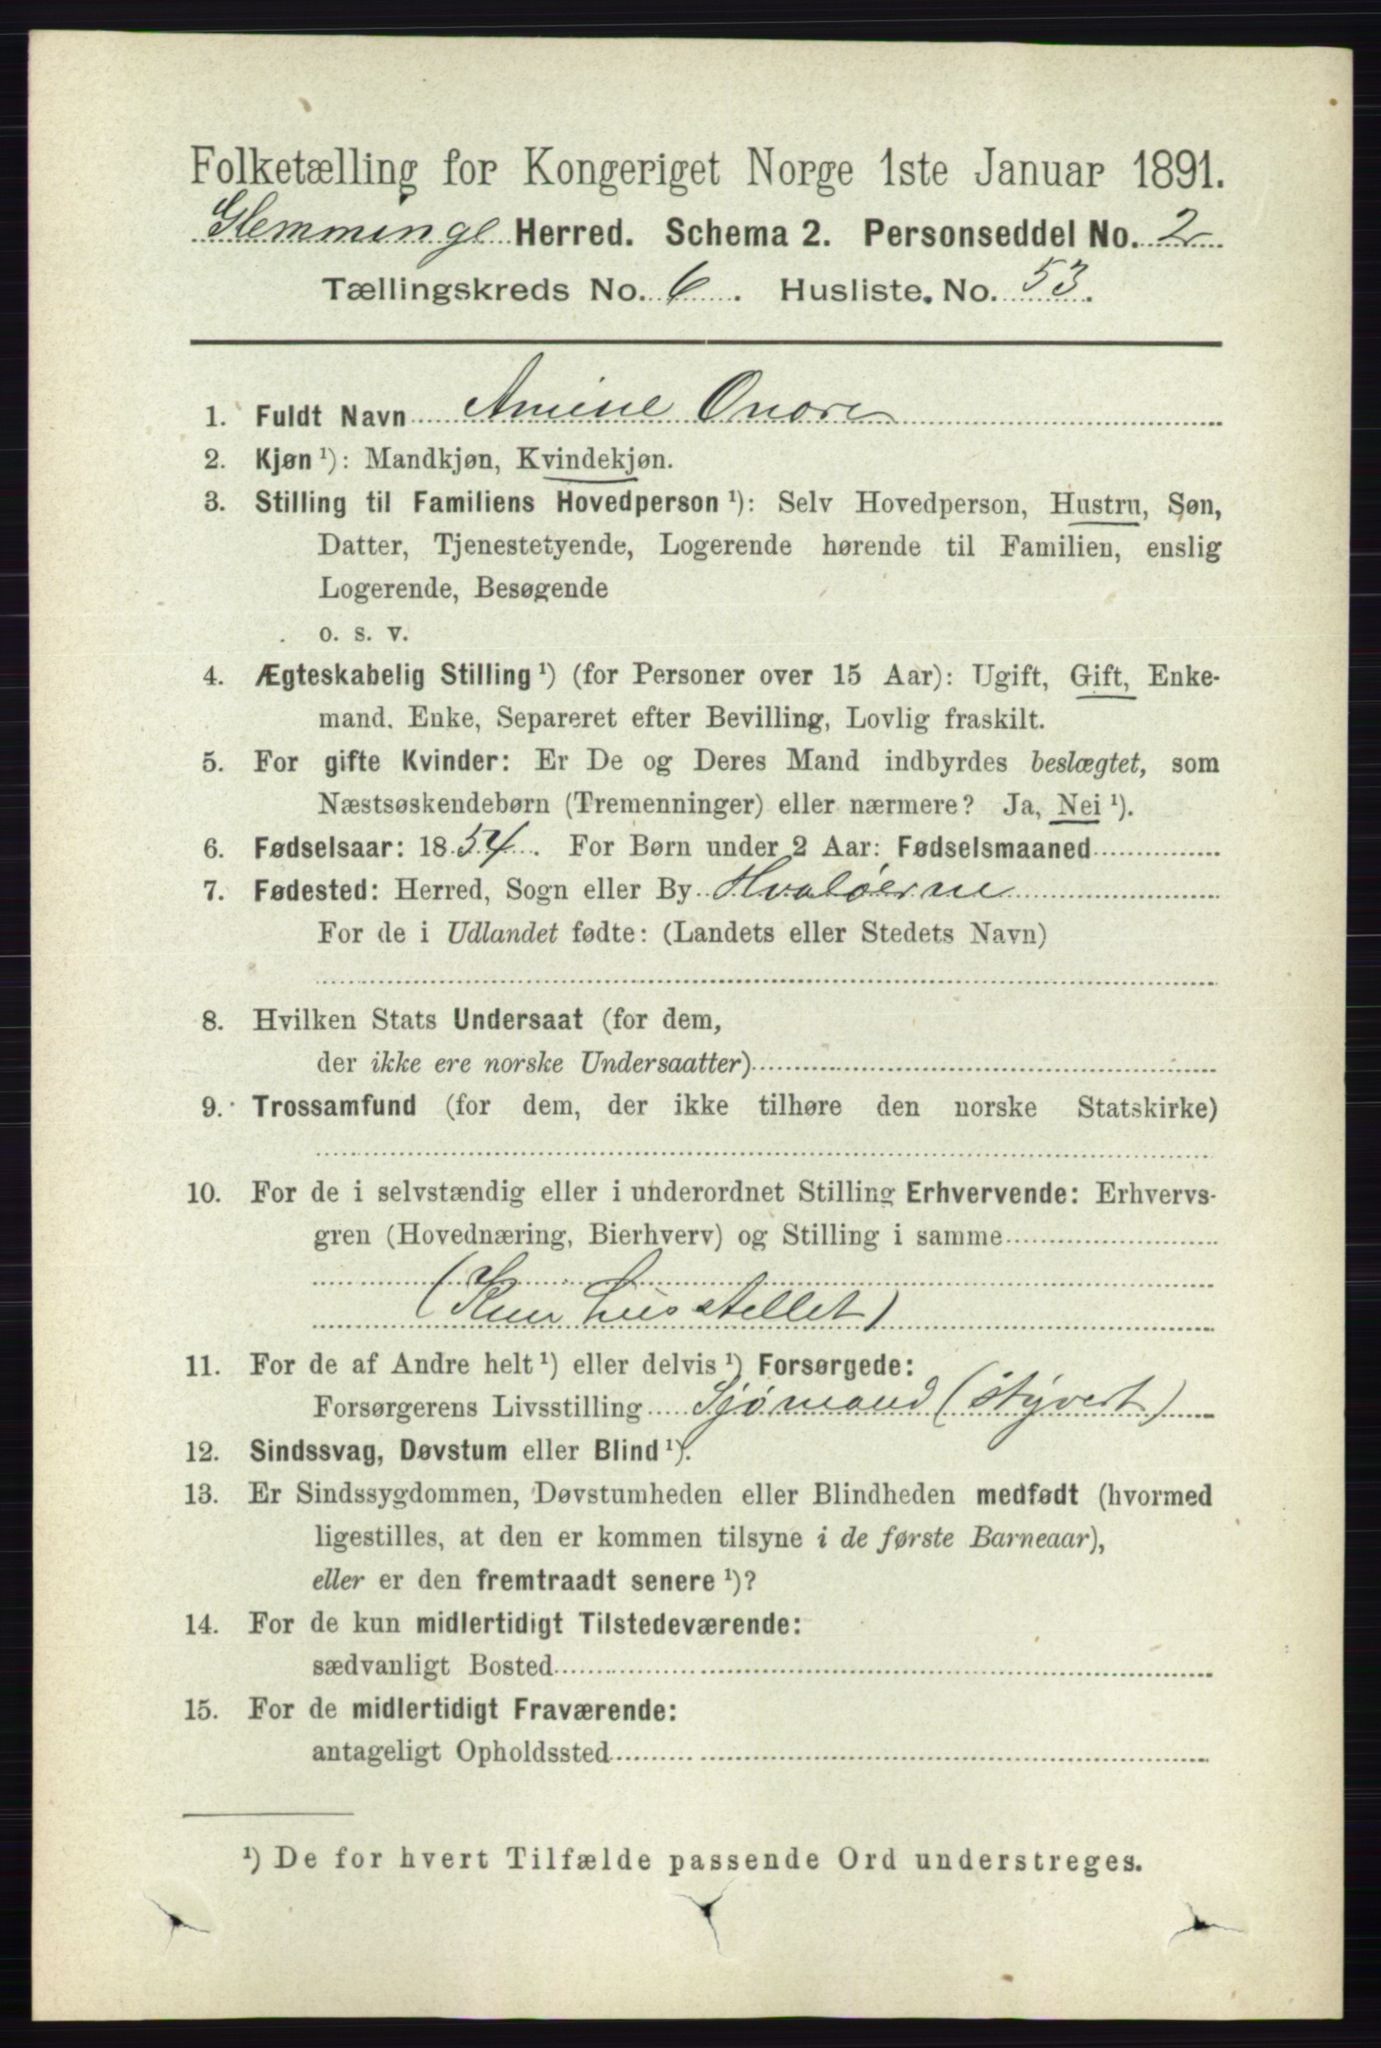 Folketælling for Kongeriget Norge 1ste Januar 1891.
Glemminge Herred. Schema 2. Personseddel No. 2
Tællingskreds No. 6. Husliste No. 53.
1. Fuldt Navn Amine Onore
2. Kjøn ¹): Mandkjøn, Kvindekjøn.
3. Stilling til Familiens Hovedperson ¹): Selv Hovedperson, Hustru, Søn,
Datter, Tjenestetyende, Logerende hørende til Familien, enslig
Logerende, Besøgende
o. s. v.
4. Ægteskabelig Stilling ¹) (for Personer over 15 Aar): Ugift, Gift, Enke-
mand. Enke, Separeret efter Bevilling, Lovlig fraskilt.
5. For gifte Kvinder: Er De og Deres Mand indbyrdes beslægtet, som
Næstsøskendebørn (Tremenninger) eller nærmere? Ja, Nei ¹).
6. Fødselsaar: 1854. For Børn under 2 Aar: Fødselsmaaned
7. Fødested: Herred, Sogn eller By Hvaløerne
For de i Udlandet fødte: (Landets eller Stedets Navn)
8. Hvilken Stats Undersaat (for dem,
der ikke ere norske Undersaatter)
9. Trossamfund (for dem, der ikke tilhøre den norske Statskirke)
10. For de i selvstændig eller i underordnet Stilling Erhvervende: Erhvervs-
gren (Hovednæring, Bierhverv) og Stilling i samme
(Kun husstellet)
11. For de af Andre helt ¹) eller delvis ¹) Forsørgede:
Forsørgerens Livsstilling Sjømand (Styvert)
12. Sindssvag, Døvstum eller Blind ¹).
13. Er Sindssygdommen, Døvstumheden eller Blindheden medfødt (hvormed
ligestilles, at den er kommen tilsyne i de første Barneaar),
eller er den fremtraadt senere ¹)?
14. For de kun midlertidigt Tilstedeværende:
sædvanligt Bosted
15. For de midlertidigt Fraværende:
antageligt Opholdssted
¹) De for hvert Tilfælde passende Ord understreges.